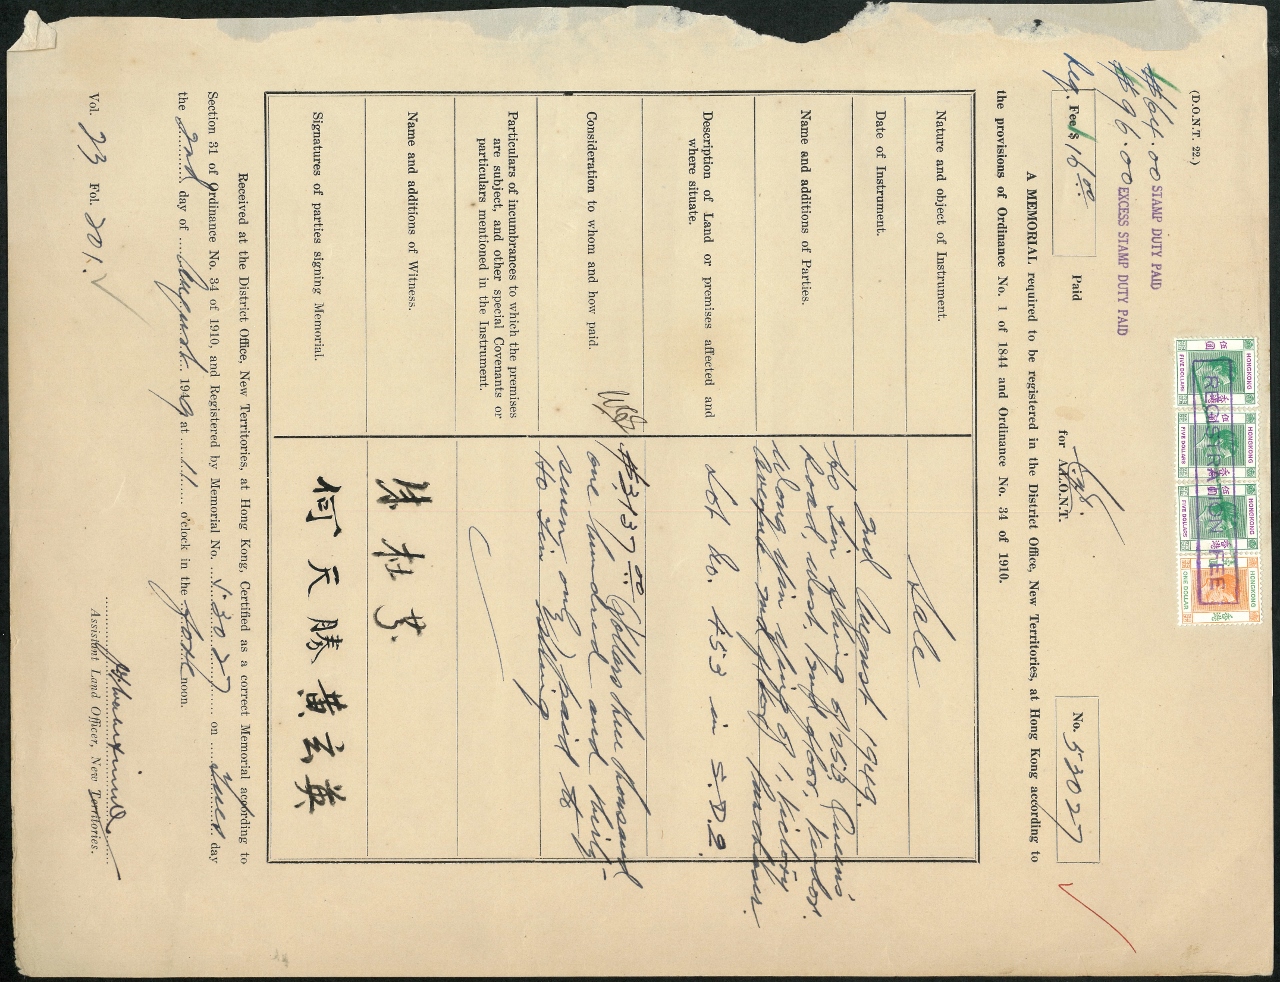 (D.O.N.T. 22.)
$64.00 STAMP DUTY PAID
$96.00 EXCESS STAMP DUTY PAID
Reg. Fee $16.00 Paid
for A.L.O.N.T.
No. 53027
HONGKONG
FIVE DOLLARS
HONGKONG
FIVE DOLLARS
HONGKONG
FIVE DOLLARS
HONGKONG
ONE DOLLAR
REGISTRATION FEE
A MEMORIAL required to be registered in the District Office, New Territories, at Hong Kong according to
the provisions of Ordinance No. 1 of 1844 and Ordinance No. 34 of 1910.
Nature and object of Instrument.
Sale
Date of Instrument.
2nd August 1949.
Name and additions of Parties.
Ho Tin Shing of 25B, Queen's
Road, West, 2nd floor, Vendor.
Wong Yin Ying of 1, Victory
Avenue 2nd floor, Purchaser.
Description of Land or premises affected and
where situate.
Lot No. 453 in S.D.2.
Consideration to whom and how paid.
$3137.00 (Dollars three thousand
one hundred and thirty-
seven only) paid to
Ho Tin Shing
Particulars of incumbrances to which the premises
are subject, and other special Covenants or
particulars mentioned in the Instrument.
Name and additions of Witness.
Signatures of parties signing Memorial.
何天勝 黃玄英
Received at the District Office, New Territories, at Hong Kong, Certified as a correct Memorial according to
Section 31 of Ordinance No. 34 of 1910, and Registered by Memorial No. 53027 on Tues day
the 2nd day of August 1949 at 11 o'clock in the fore noon.
Assistant Land Officer, New Territories.
Vol. 23 Fol. 201.